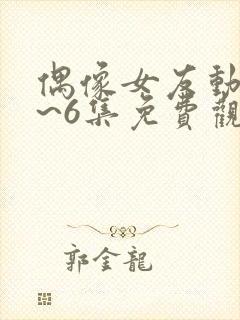 偶像女友動
~6集免費觀
郭金龍